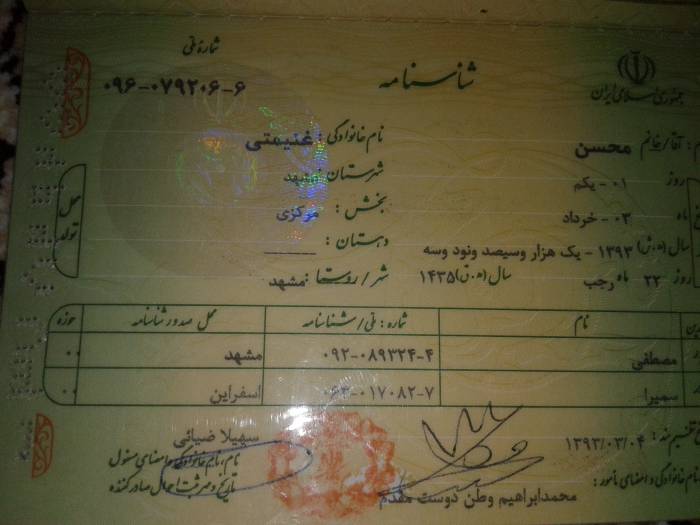 جمهوری اسلامی ایران
شناسنامه
شماره ملی
۰۹۶-۰۷۹۲۰۶-۶
آقا/خانم : محسن
نام خانوادگی : غنیمتی
محل تولد
روز ۰۱ - یکم
شهرستان : مشهد
ماه ۰۳ - خرداد
بخش : مرکزی
سال (ه.ش) ۱۳۹۳ - یک هزار وسیصد ونود وسه
دهستان :
روز ۲۲ ماه رجب سال (ه.ق) ۱۴۳۵
شهر/روستا : مشهد
نام
شماره : ملی/شناسنامه
محل صدور شناسنامه
حوزه
مصطفی
۰۹۲-۰۸۹۳۲۴-۴
مشهد
۰۰
سمیرا
۰۶۳-۰۱۷۰۸۲-۷
اسفراین
۰۰
تنظیم سند : ۱۳۹۳/۰۳/۰۴
نام خانوادگی و امضای مامور :
محمدابراهیم وطن دوست مقدم
سهیلا ضیائی
نام، نام خانوادگی و امضای مسئول
تاریخ و مهر ثبت احوال صادرکننده